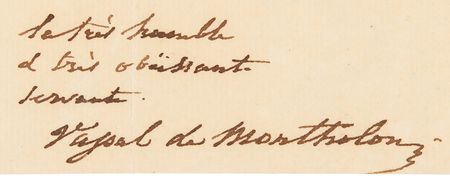 la très humble
et très obéissante
servante.
Vassal de Montholon